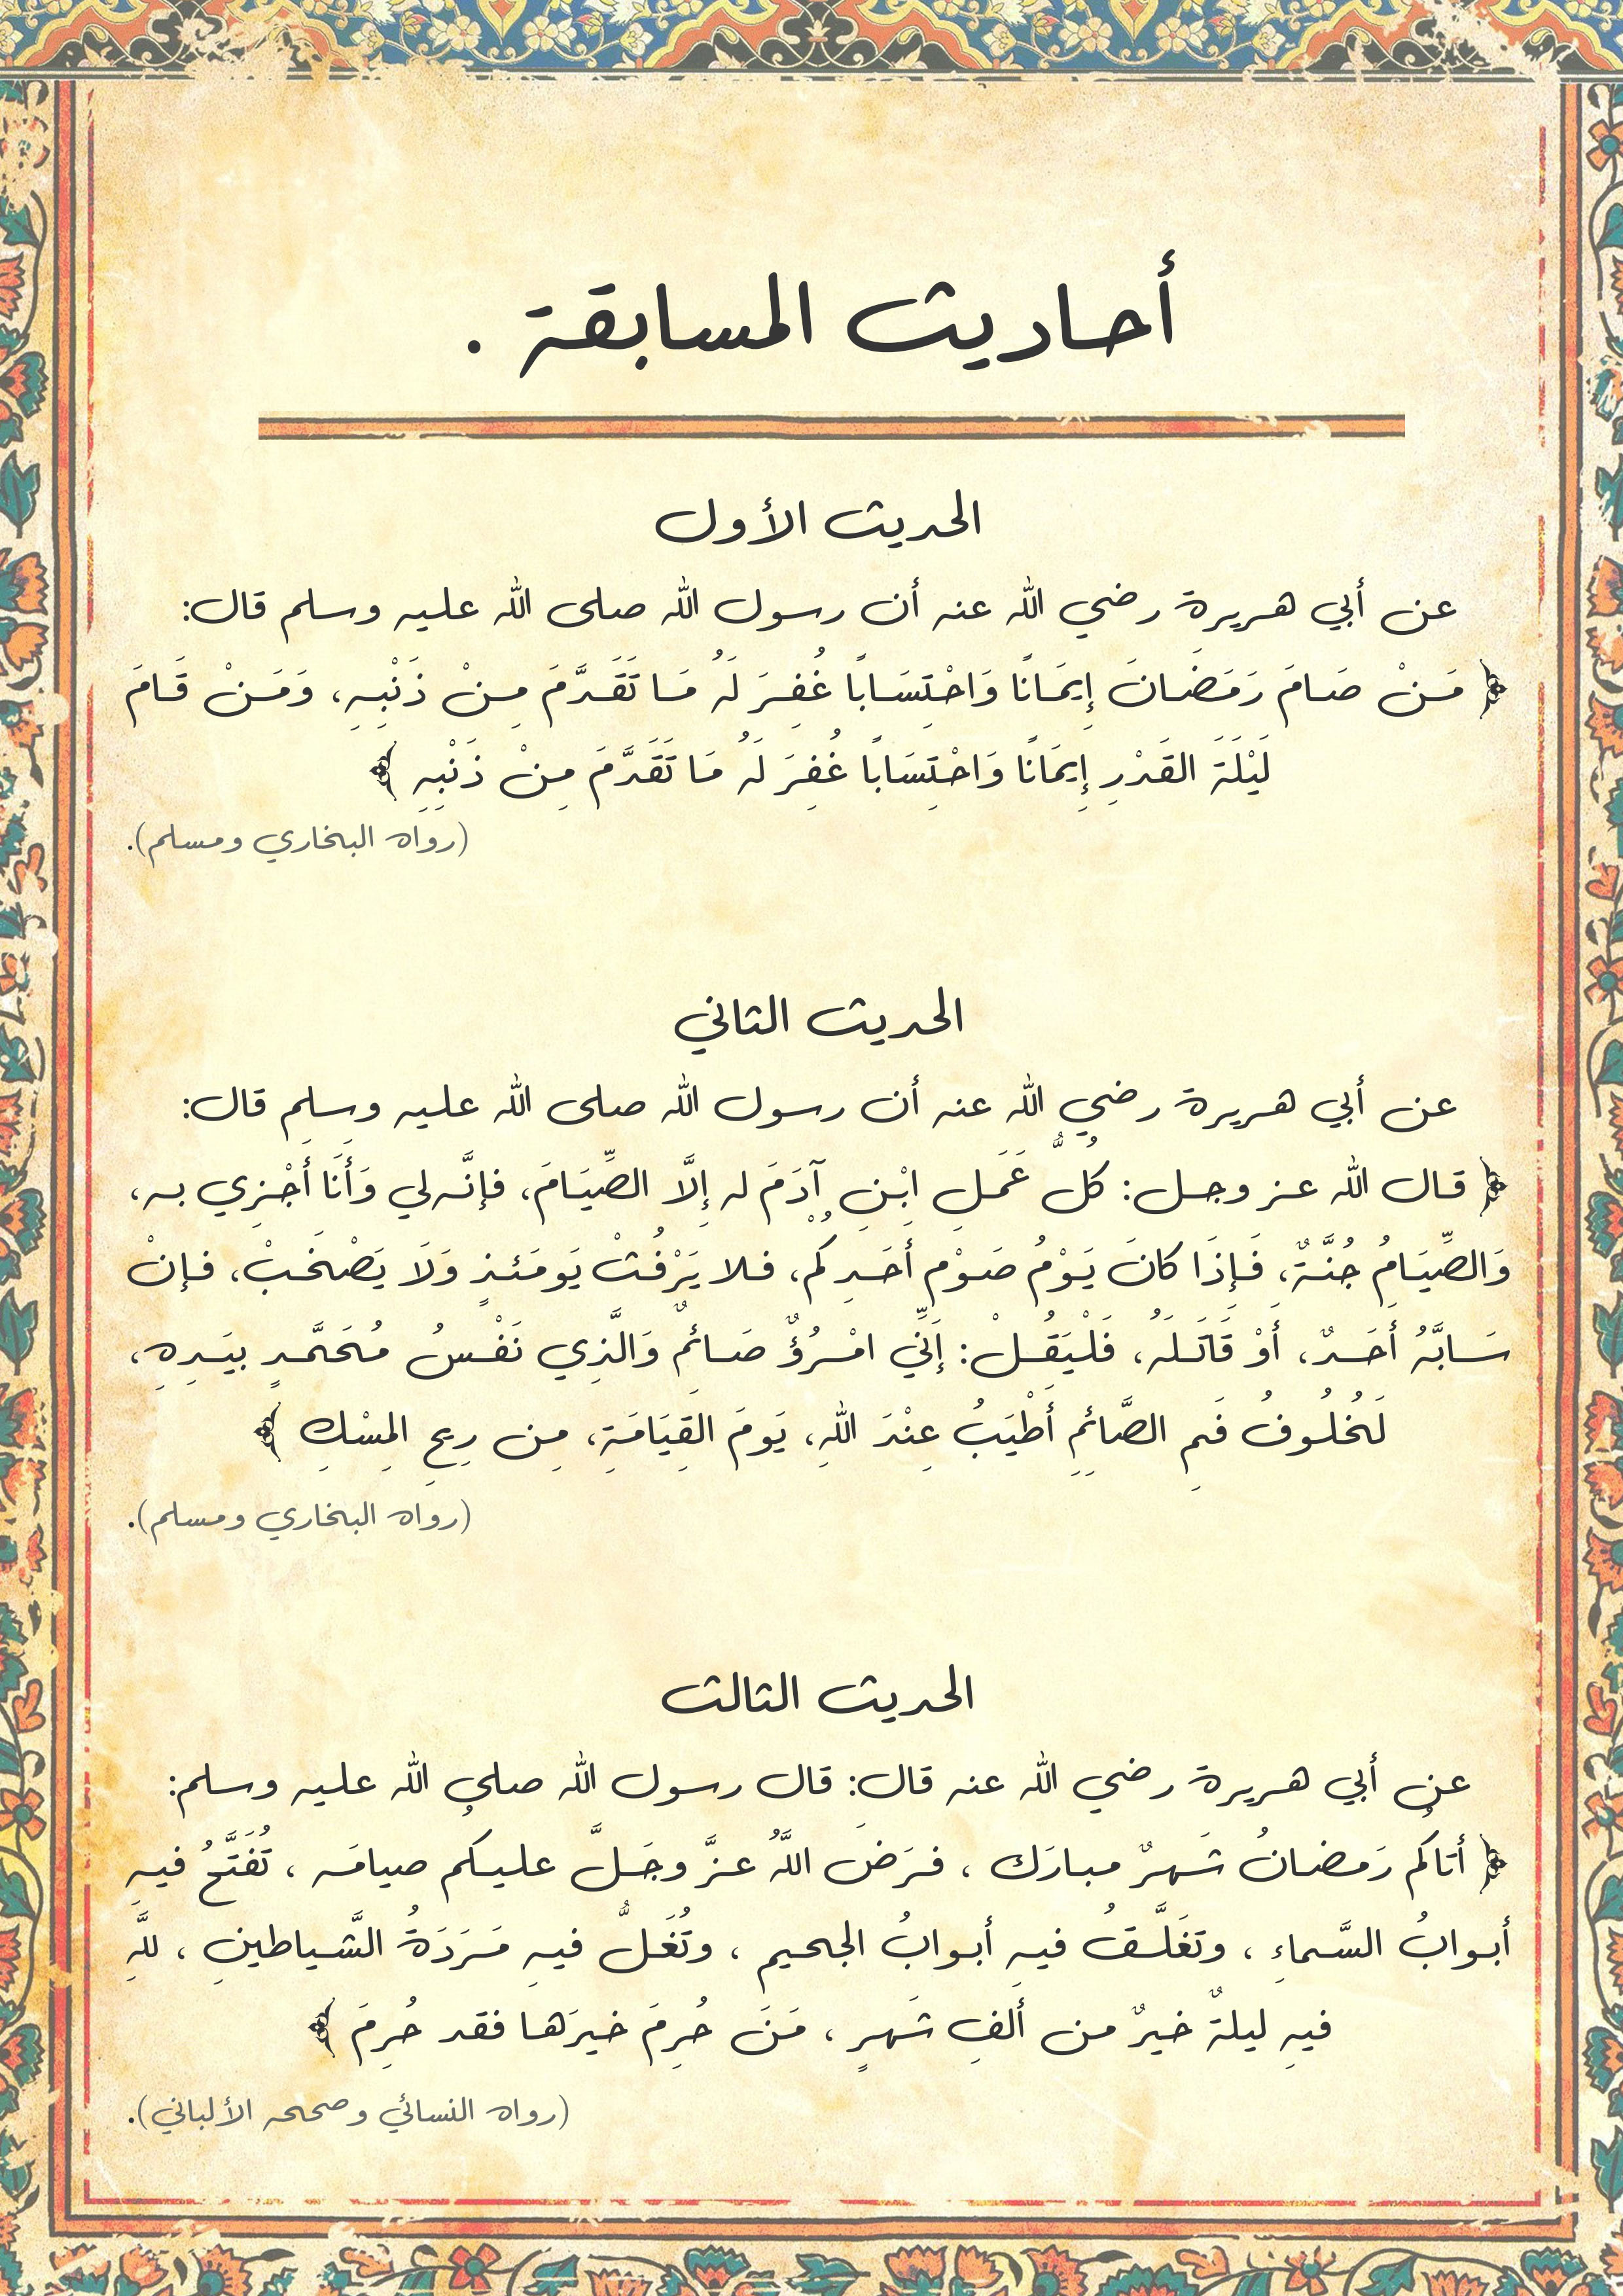 أحاديث المسابقة .
الحديث الأول
عن أبي هريرة رضي الله عنه أن رسول الله صلى الله عليه وسلم قال:
﴿ مَنْ صَامَ رَمَضَانَ إِيمَانًا وَاحْتِسَابًا غُفِرَ لَهُ مَا تَقَدَّمَ مِنْ ذَنْبِهِ، وَمَنْ قَامَ
لَيْلَةَ القَدْرِ إِيمَانًا وَاحْتِسَابًا غُفِرَ لَهُ مَا تَقَدَّمَ مِنْ ذَنْبِهِ ﴾
(رواه البخاري ومسلم).
الحديث الثاني
عن أبي هريرة رضي الله عنه أن رسول الله صلى الله عليه وسلم قال:
﴿ قال الله عز وجل: كُلُّ عَمَلِ ابْنِ آدَمَ له إِلَّا الصِّيَامَ، فإنَّه لي وَأَنَا أَجْزِي به،
وَالصِّيَامُ جُنَّةٌ، فَإِذَا كانَ يَوْمُ صَوْمِ أَحَدِكُمْ، فلا يَرْفُثْ يَومَئذٍ وَلَا يَصْخَبْ، فإنْ
سَابَّهُ أَحَدٌ، أَوْ قَاتَلَهُ، فَلْيَقُلْ: إِنِّي امْرُؤٌ صَائمٌ وَالَّذِي نَفْسُ مُحَمَّدٍ بيَدِهِ،
لَخُلُوفُ فَمِ الصَّائمِ أَطْيَبُ عِنْدَ اللهِ، يَومَ القِيَامَةِ، مِن رِيحِ المِسْكِ ﴾
(رواه البخاري ومسلم).
الحديث الثالث
عن أبي هريرة رضي الله عنه قال: قال رسول الله صلى الله عليه وسلم:
﴿ أتاكُم رَمضانُ شَهرٌ مبارَك ، فرَضَ اللَّهُ عزَّ وجَلَّ عليكُم صيامَه ، تُفَتَّحُ فيهِ
أبوابُ السَّماءِ ، وتغَلَّقُ فيهِ أبوابُ الجحيمِ ، وتُغَلُّ فيهِ مَرَدَةُ الشَّياطينِ ، للَّهِ
فيهِ ليلةٌ خيرٌ من ألفِ شَهرٍ ، مَنَ حُرِمَ خيرَها فقد حُرِمَ ﴾
(رواه النسائي وصححه الألباني).